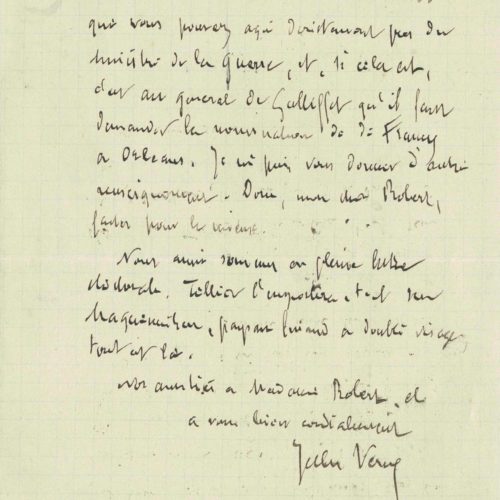 que vous pouvez agir directement près du
ministre de la Guerre, et, si cela est,
c'est au général de Galliffet qu'il faut
demander la nomination de de Francy
à Orléans. Je ne puis vous donner d'autre
renseignement. Donc, mon cher Robert,
faites pour le mieux.
Nous aussi sommes en pleine lutte
électorale. Tellier l'emportera, t-il sur
tout est là.
Nos amitiés à Madame Robert, et
à vous bien cordialement
Jules Verne